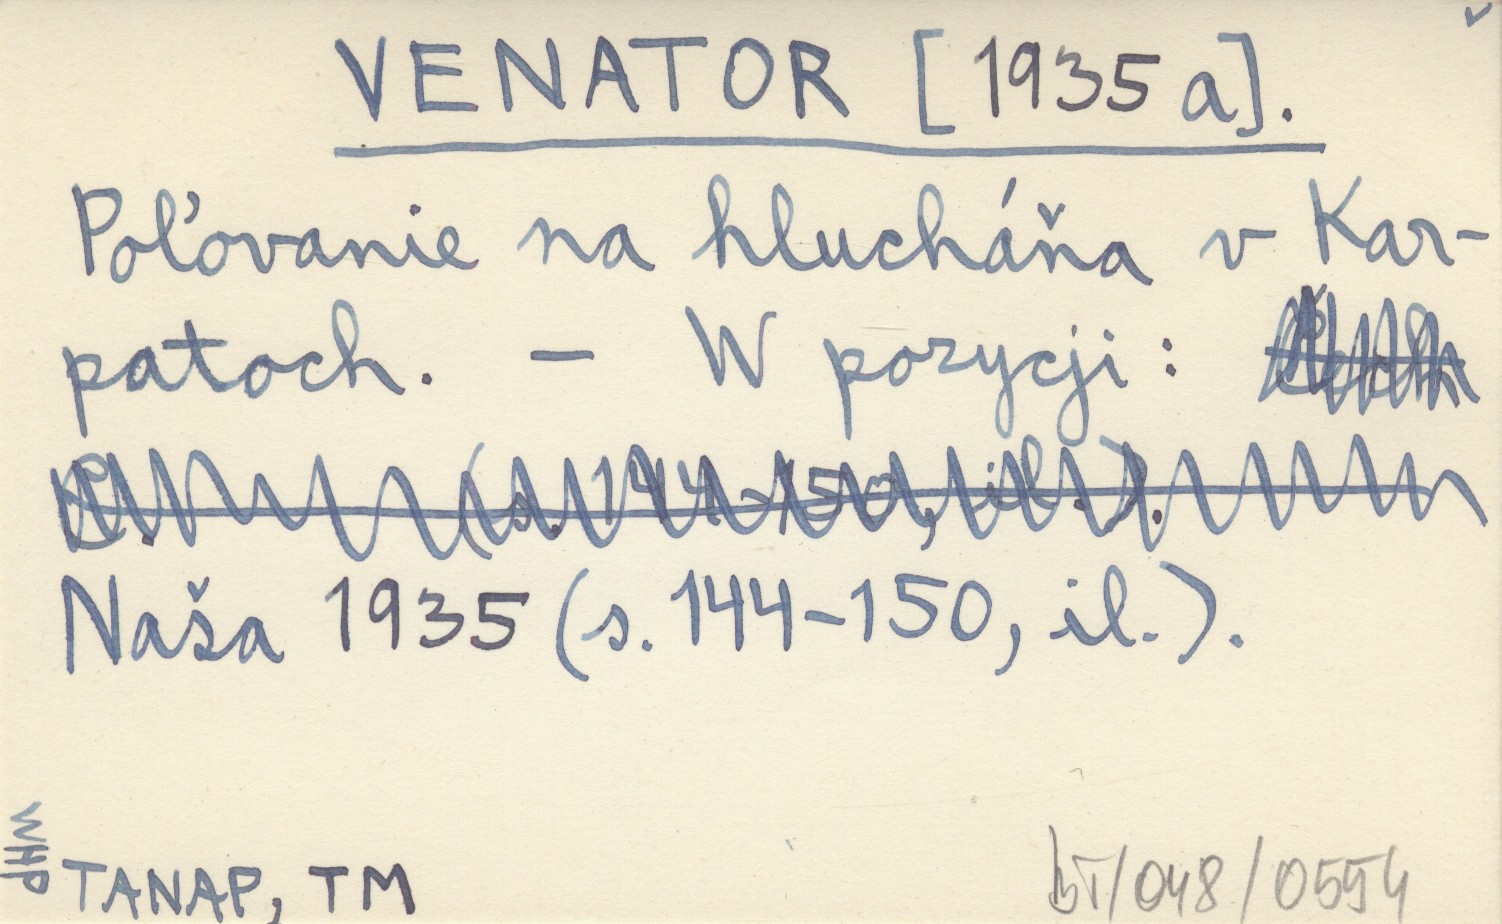 VENATOR [1935 a].
Poľovanie na hlucháňa v Kar-
patoch. — W pozycji:
(s. 144-150, il.).
Naša 1935 (s. 144-150, il.).
WHP
TANAP, TM
BT/048/0554